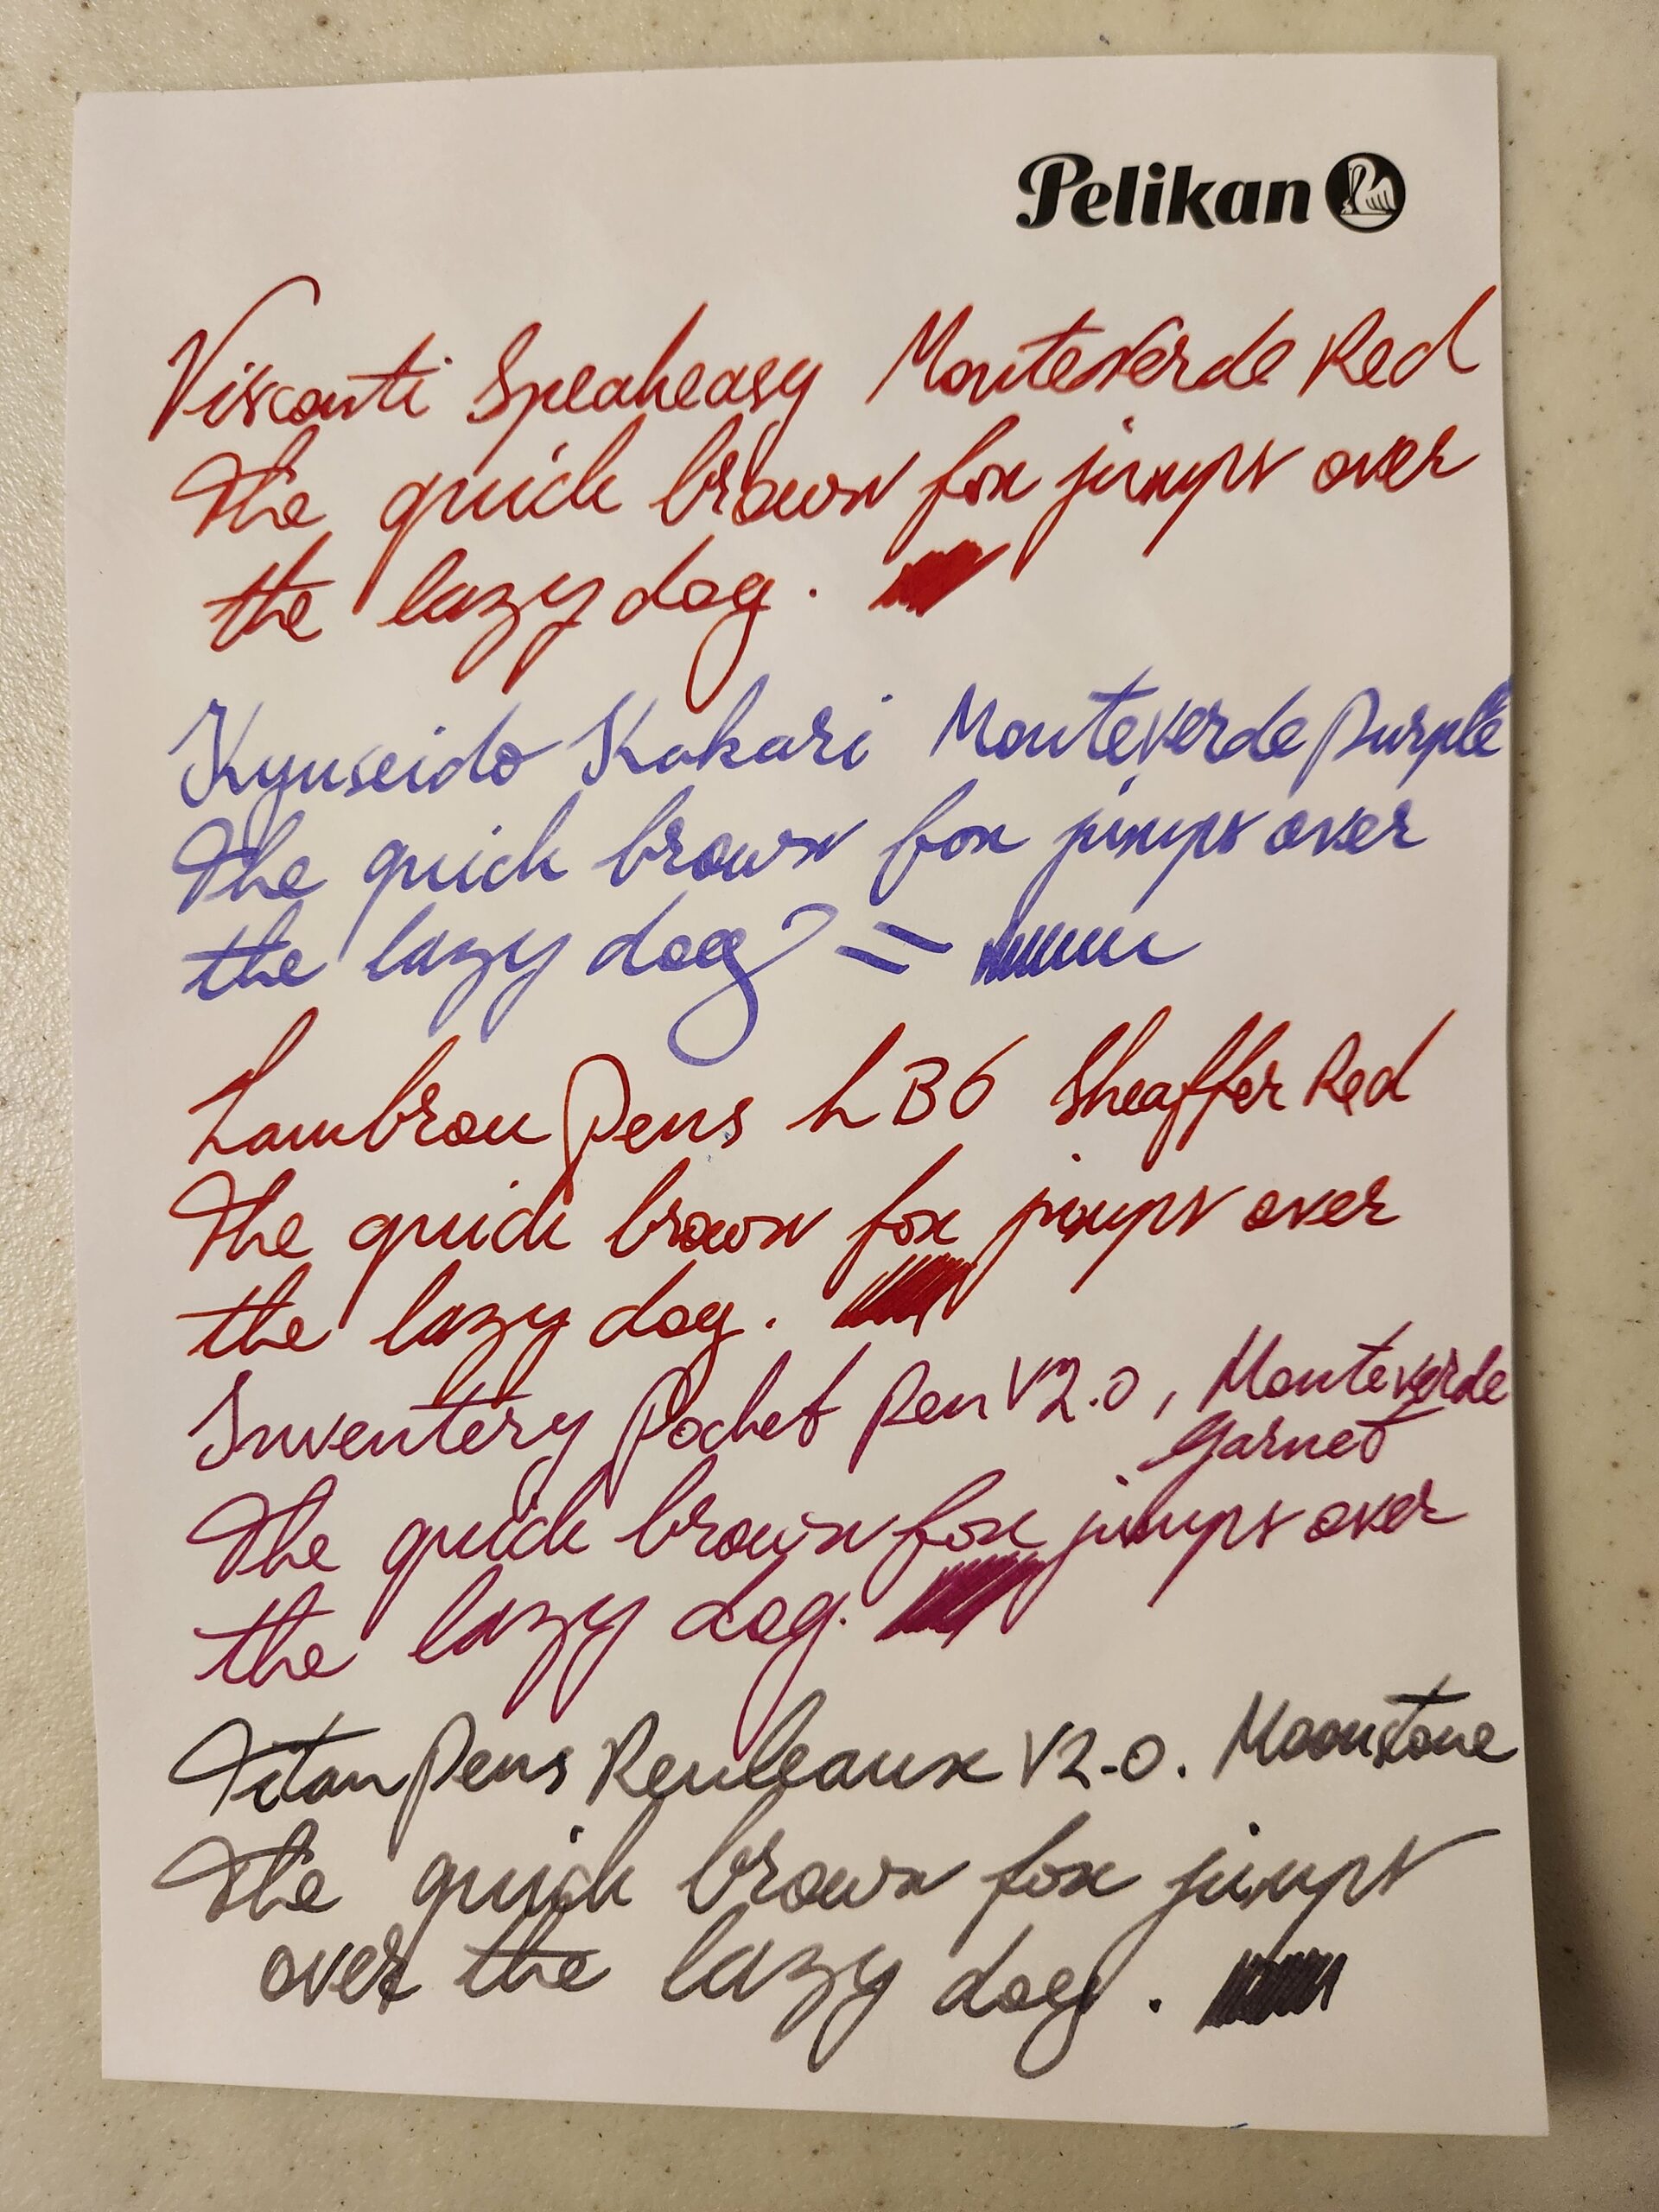 Pelikan
Visconti Speakeasy Monteverde Red
The quick brown fox jumps over
the lazy dog.
Kyuseido Kakari Monteverde Purple
The quick brown fox jumps over
the lazy dog
Lambrou Pens LB6 Sheaffer Red
The quick brown fox jumps over
the lazy dog.
Inventery Pocket Pen V2.0, Monteverde
Garnet
The quick brown fox jumps over
the lazy dog.
Titan Pens Reuleaux V2.0. Moonstone
The quick brown fox jumps
over the lazy dog.